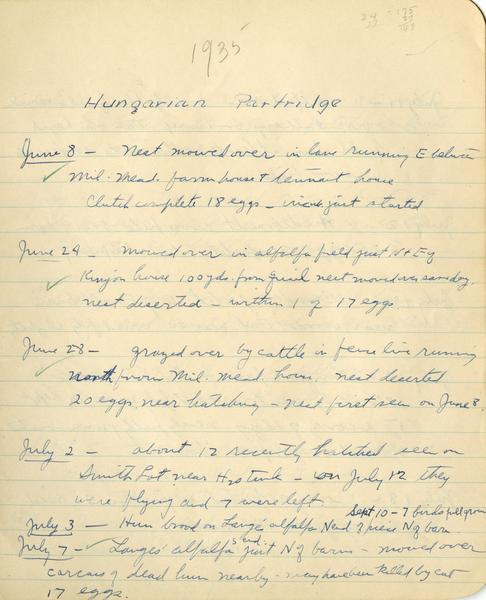 24 - 175
1935
Hungarian Partridge
June 8 - Nest mowed over in lane running E between
Mil. Mead. farm house & tennant house
Clutch complete 18 eggs - incub. just started
June 24 - mowed over in alfalfa field just N + E of
house 100 yds. from Quail nest mowed over same day.
nest deserted - within 1 of 17 eggs.
June 28 - grazed over by cattle in fence line running
north from Mil. Mead. house. nest deserted
20 eggs near hatching - nest first seen on June 8.
July 2 - about 12 recently hatched seen on
Smith Lot near H2O tank - on July 12 they
were flying and 7 were left
Sept 10 - 7 birds full grown
July 3 - Hun brood on Lange's alfalfa N end 3 piece N of barn.
July 7 - Lange's alfalfa S end just N of barn - mowed over
carcass of dead hun nearby - may have been killed by cat
17 eggs.